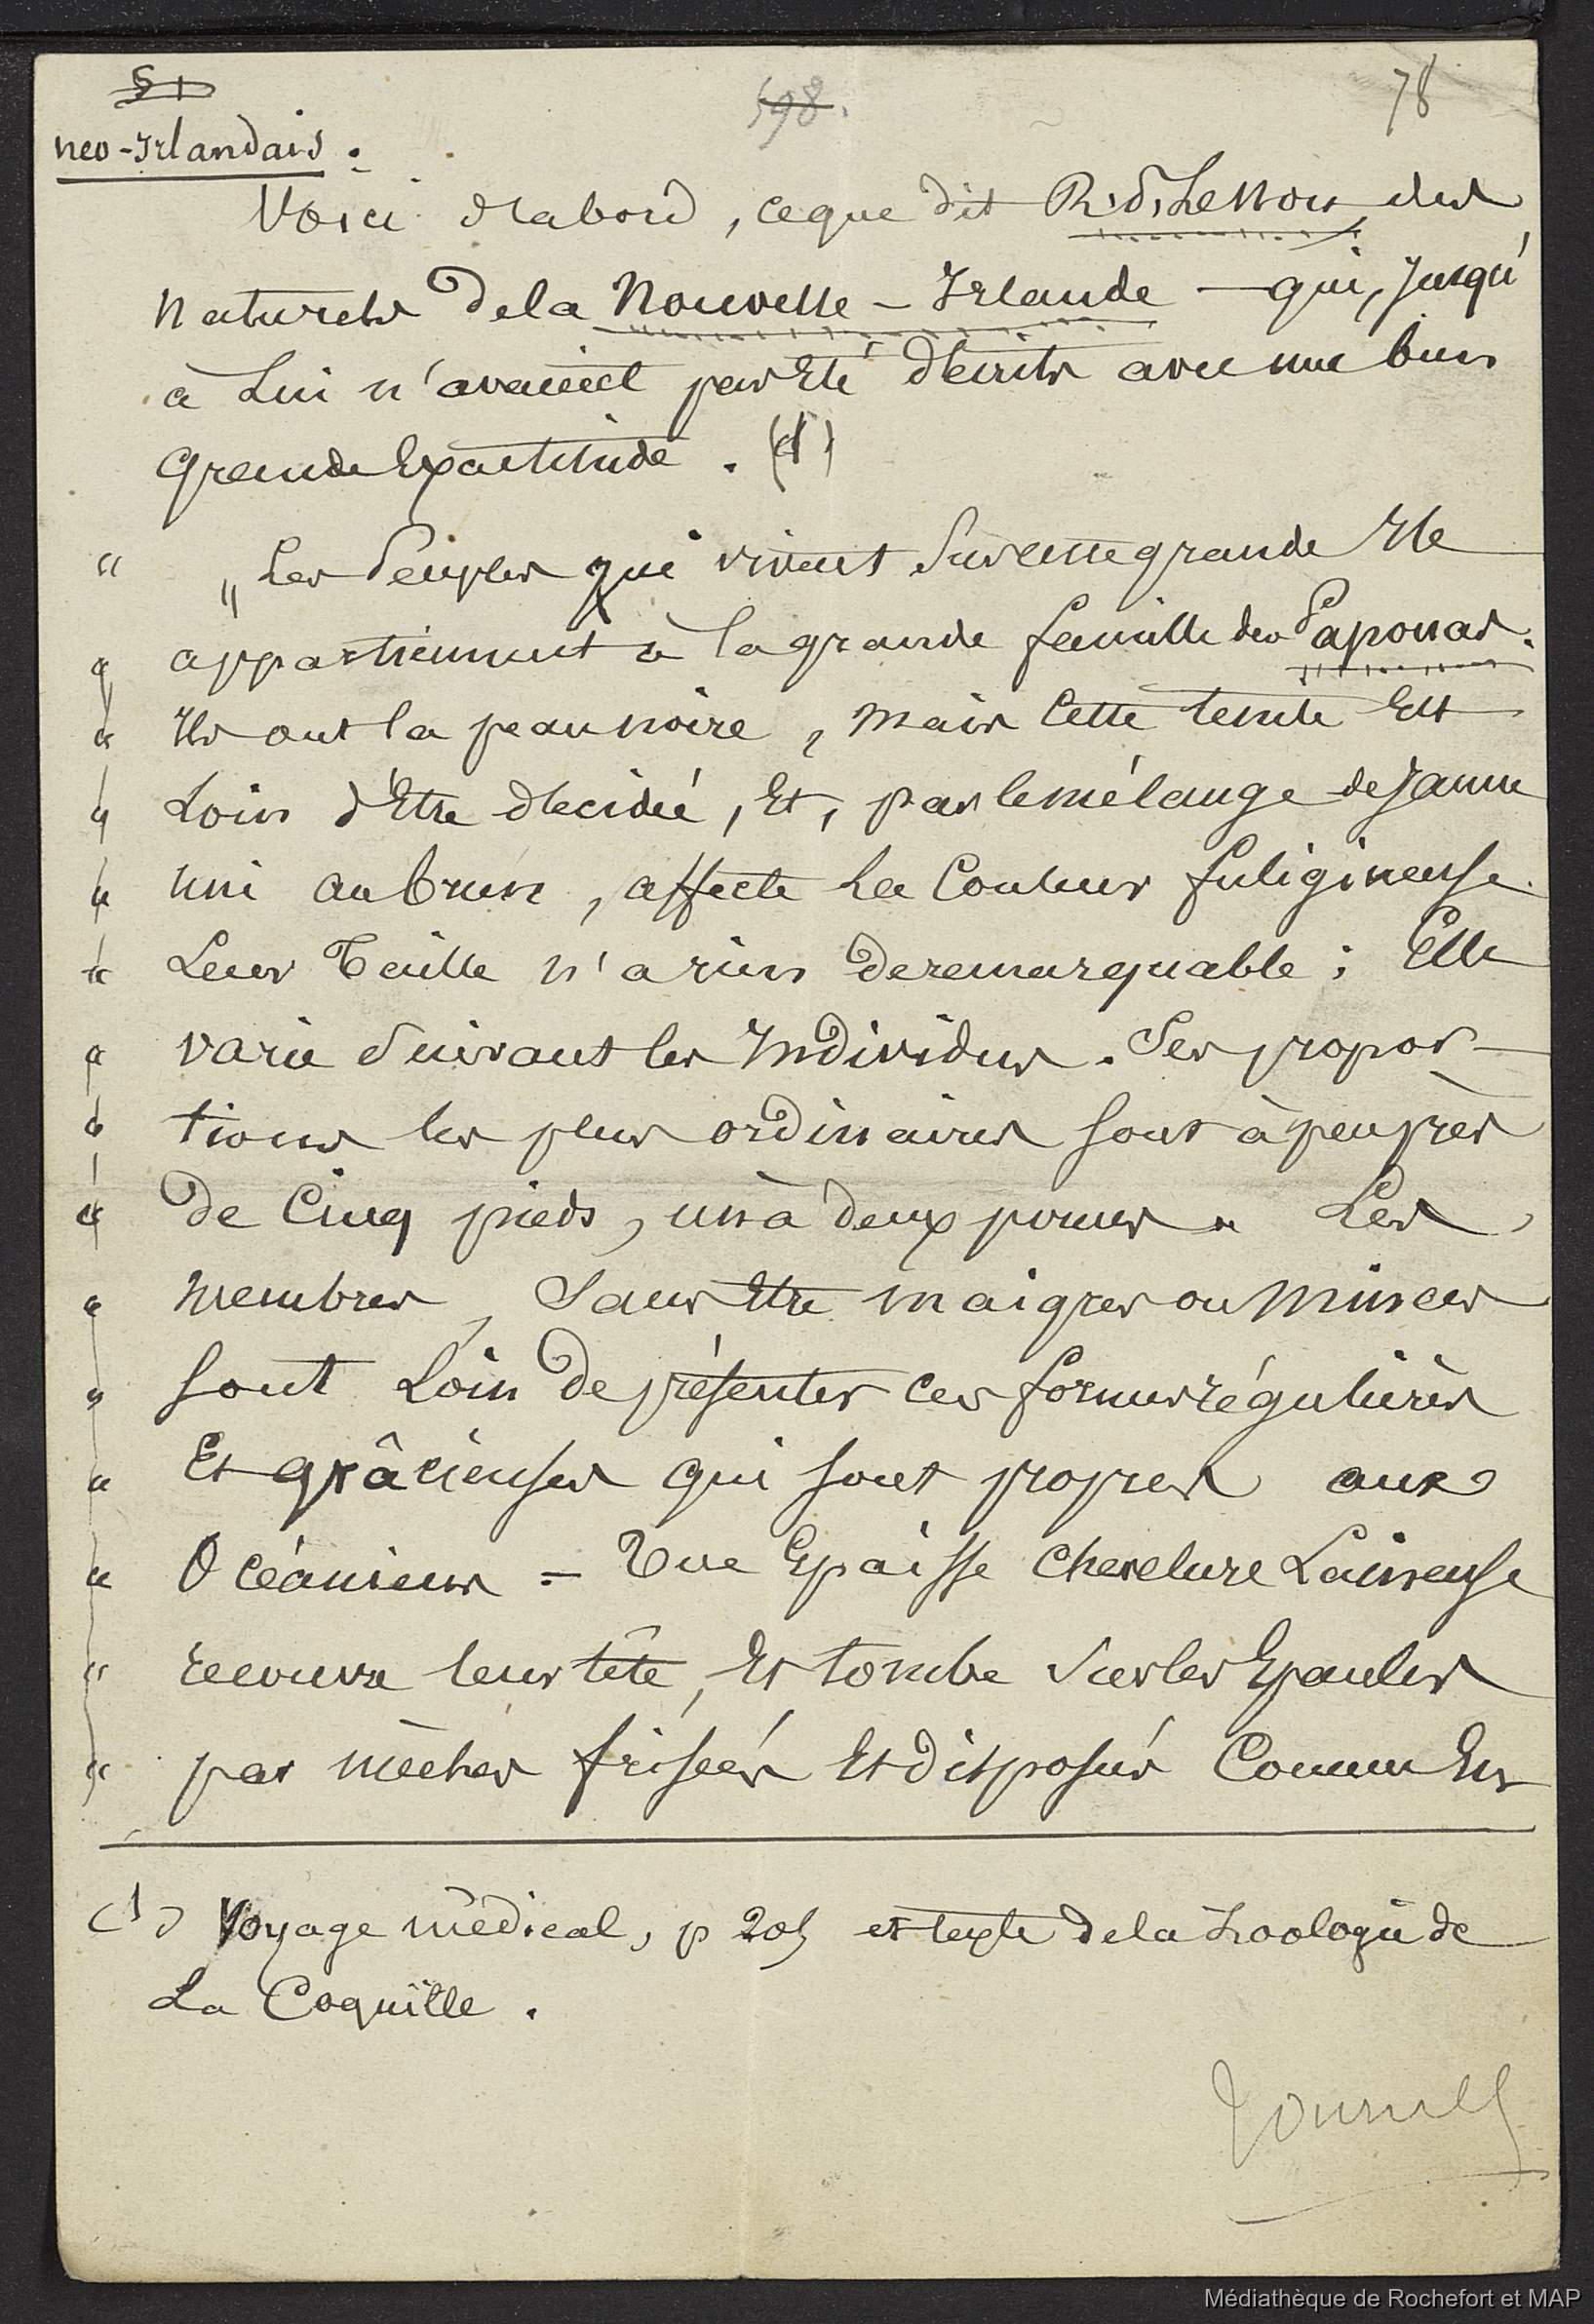 51
598.
78
neo-Irlandais.
Voici d'abord, ce que dit R. P. Lesson, des
naturels de la Nouvelle-Irlande — qui, jusqu'
à Lui n'avaient pas été décrits avec une bien
grande Exactitude. (1)
" „ Les Peuples qui vivent Sur cette grande Ile
" appartiennent à la grande famille des Papouas.
" Ils ont la peau noire, mais Cette teinte Est
" Loin d'Etre décidée, Et, par le mélange de Jaune
" uni au brun, affecte La Couleur fuligineuse.
" Leur Taille n'a rien de remarquable; Elle
" varie Suivant les Individus. Ses propor-
" tions les plus ordinaires sont à peu près
" de Cinq pieds, un à deux pouces. Les
" membres, Sans Etre maigres ou minces
" sont Loin de présenter ces formes régulières
" Et grâcieuses qui sont propres aux
" Océaniens = Une Epaisse chevelure Laineuse
" recouvre leur tête, Et tombe Sur les Epaules
" par mèches frisées Et disposées Comme En
(1) Voyage médical, p 205 et texte de la Zoologie de
La Coquille.
Tournez
Médiathèque de Rochefort et MAP